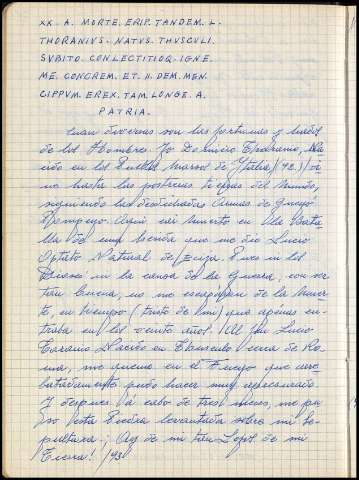 XX. A. MORTE. ERIP. TANDEM. L.
THORANIVS. NATVS. THVSCULI.
SVBITO. CONLECTITIOQ. IGNE.
ME. CONCREM. ET. II. DEM. MEN.
CIPPVM. EREX. TAM. LONGE. A.
PATRIA.
Cuan diversas son las fortunas y hados
de los Hombres. Yo
cido en los Pueblos Marsos de Ytalia, (92) vi
ne hasta las postreras tierras del Mundo,
siguiendo las desdichadas Armas de Gneyo
Pompeyo. Aqui cai muerto en la Bata
lla de una herida que me dio Lucio
Optato Natural de Ecija. Pues ni los
Dioses ni la causa de la Guerra, con ser
tan buena, no me escaparon de la muer
te, en tiempo (triste de mi) que apenas en
traba en los veinte años! Al fin Lucio
Toranio Nacido en Thusculo cerca de Ro
ma, me quemo en el Fuego que arre
batadamente pudo hacer muy apresurado
Y despues á cabo de tres meses, me pu
so esta Piedra levantada sobre mi Se
pultura; Ay de mi tan Lejos de mi
Tierra! (93)